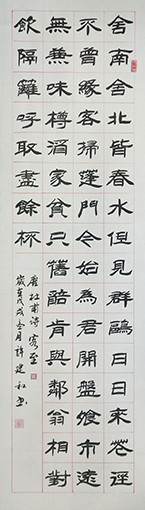 舍南舍北皆春水但見群鷗日日來花徑
不曾緣客掃蓬門今始為君開盤飧市遠
無兼味樽酒家貧只舊醅肯與鄰翁相對
飲隔籬呼取盡餘杯
唐杜甫詩客至
歲在戊戌冬月許建社書